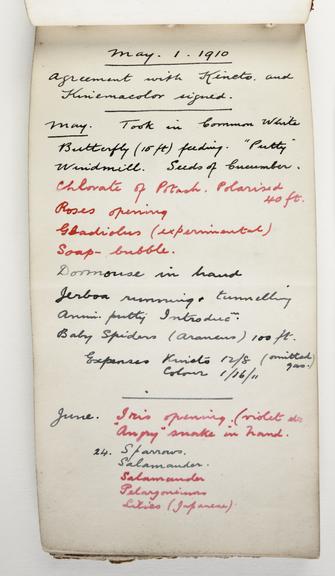 May. 1. 1910
Agreement with Kineto. and
Kinemacolor signed.
May. Took in Common White
Butterfly (15 ft) feeding. "Putty"
Windmill. Seeds of Cucumber.
Chlorate of Potash. Polarised
40 ft.
Roses opening
Gladiolus (experimental)
Soap-bubble.
Dormouse in hand
Jerboa running + tunnelling
Anim. putty Introduc.
Baby Spiders (Araneus) 100 ft.
Expenses Kineto 12/8 (omitted
gas.)
Colour 1/16/11
June. Iris opening (violet
"Angry" snake in hand.
24. Sparrows.
Salamander.
Salamander
Pelargoniums
Lilies (Japanese)